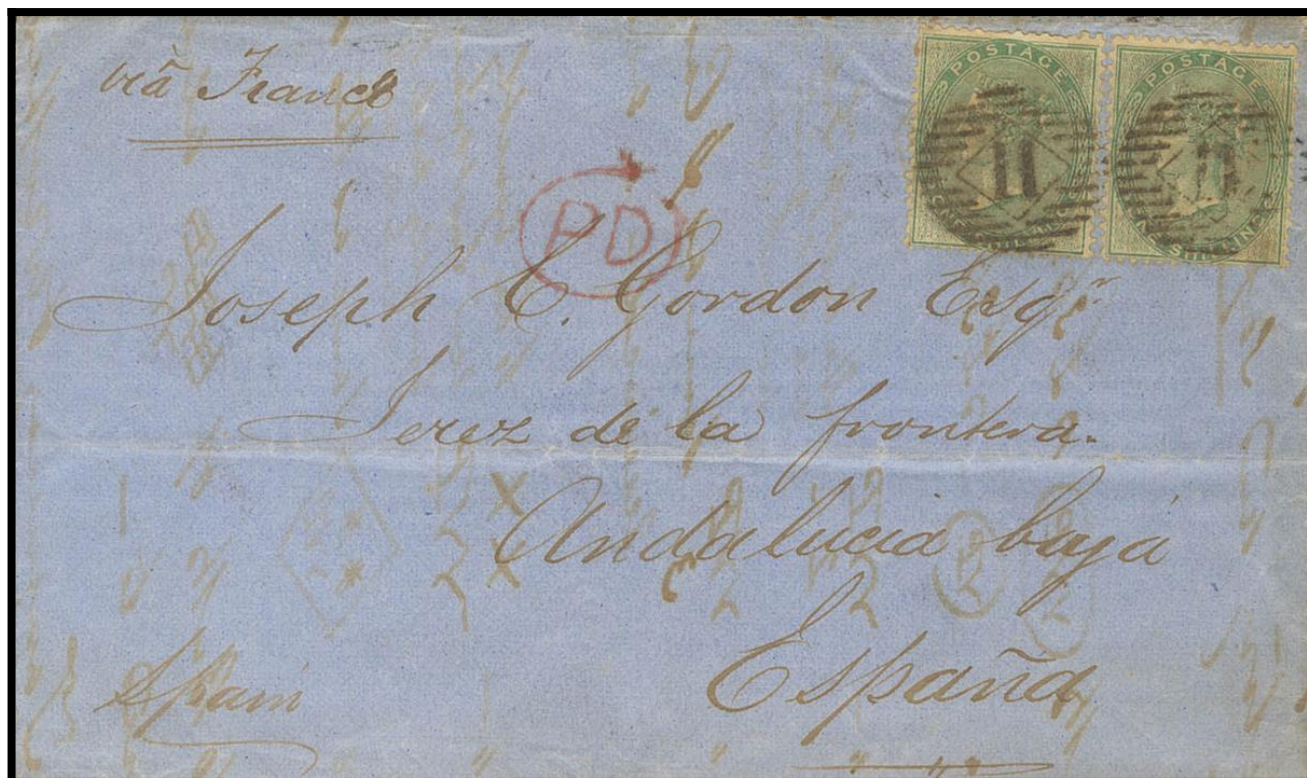 viâ France
POSTAGE
POSTAGE
11
ONE SHILLING
PD
Joseph C. Gordon Esqr
Jerez de la frontera.
Andalucia baja
España
Spain